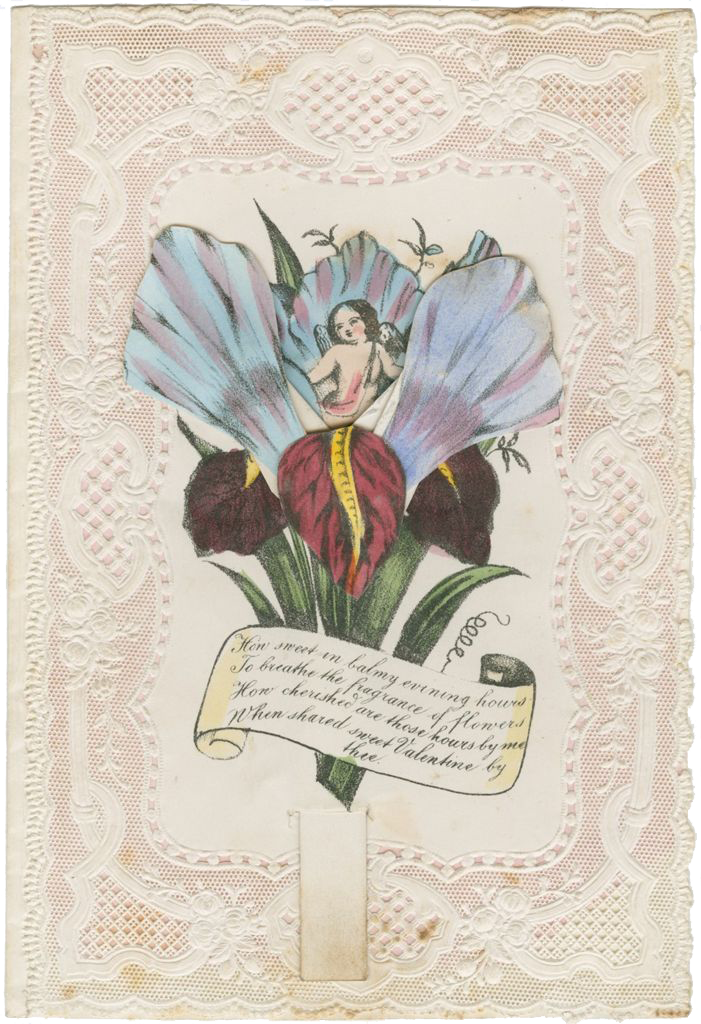 How sweet in balmy evening hours
To breathe the fragrance of flowers
How cherished are those hours by me
When shared sweet Valentine by
thee.